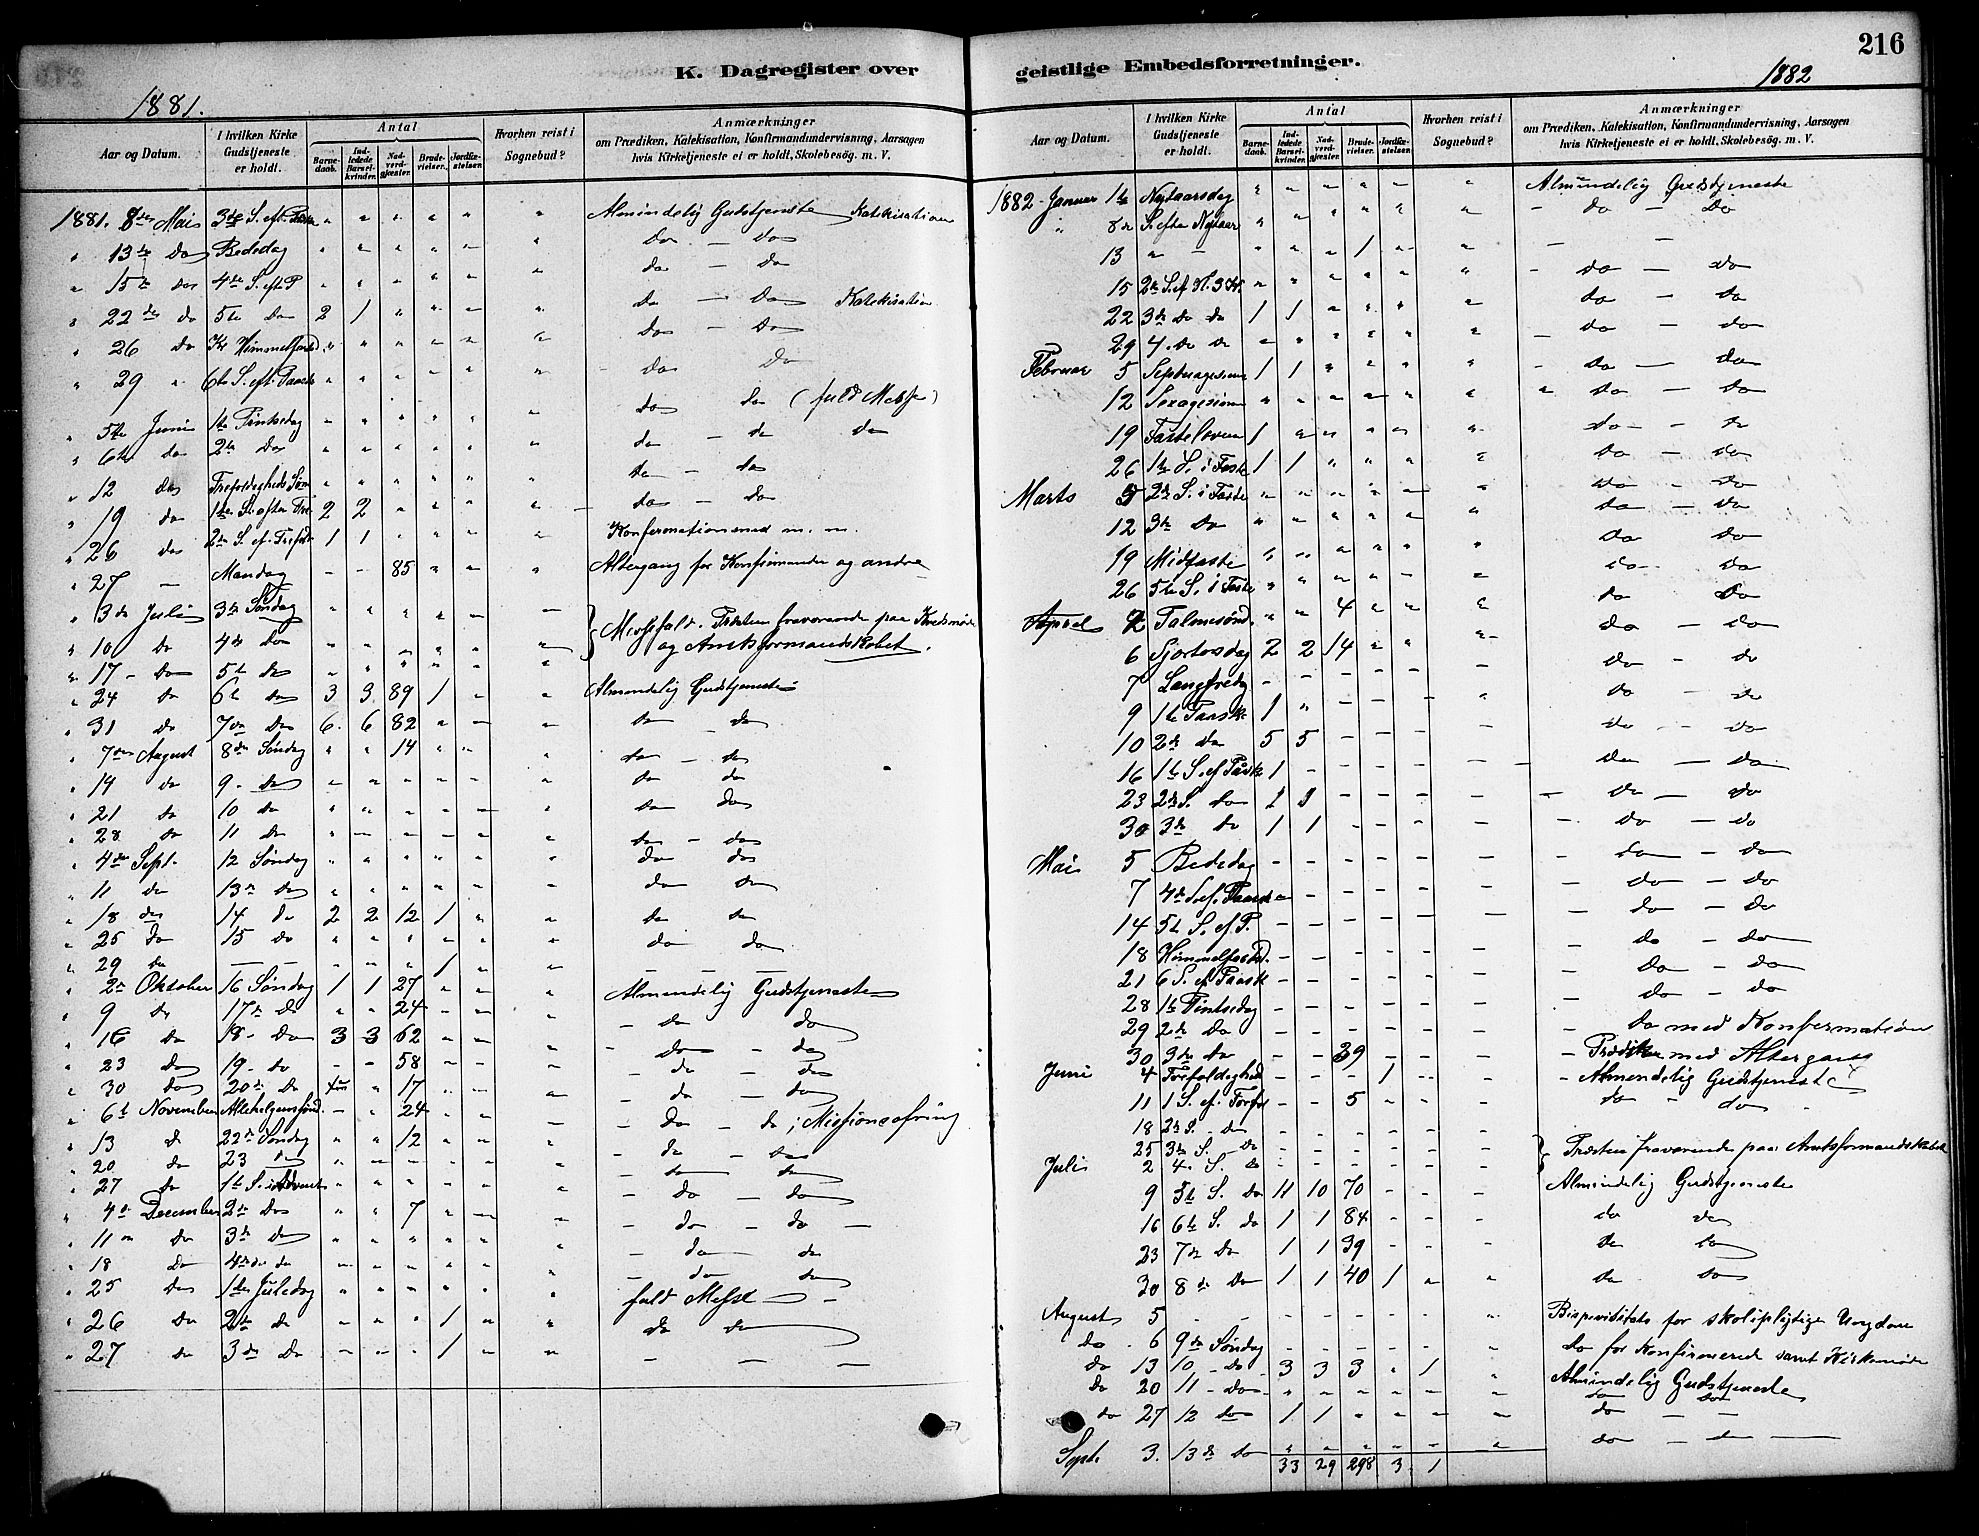 216
K. Dagregister over geistlige Embedsforretninger.
1881.
1882
Aar og Datum. I hvilken Kirke Gudstjeneste er holdt. Antal Barnedaab. Indledede Barselkvinder. Nadverdgjæster. Brudevielser. Jordfæstelser. Hvorhen reist i Sognebud? Anmærkninger om Prædiken, Katekisation, Konfirmandundervisning, Aarsagen hvis Kirketjeneste ei er holdt, Skolebesøg. m. V.
1881. 8de Mai 3die S. eft. Paaske " " " " " " Almindelig Gudstjeneste Katekisation
" 13de do Bededag " " " " " " do — do
" 15de do 4de S. eft. P " " " " " " do — do
" 22de do 5te do 2 1 " " " " do — do Katekisation
" 26 do Kr Himmelfartsd. " " " " " " do — do
" 29 " 6te S. eft. Paaske " " " " " " do do
" 5te Juni 1te Pintsedag " " " " " " do do (fuld Messe)
" 6te do 2de do " " " " " " do — do do
" 12 do Trefoldigheds Søn " " " " " " do — do
" 19 do 1te S. efter Tre 2 2 " " " " do — do
" 26 do 2den S. ef. Trefold 1 1 " " " " Konfirmation m. m.
" 27 — Mandag - - 85 " " " Altergang for Konfirmander og andre
" 3de Juli 3de Søndag " " " " " — Messefald. Præsten fraværende paa Kredsmøde
" 10 do 4de do " " " " " " og Amtsformandskabet.
" 17 - do 5te do " " " " " "
" 24 do 6te do 3 3 89 1 " " Almindelig Gudstjeneste
" 31 do 7de do 6 6 82 " - " do do
" 7de August 8de Søndag " " 14 " " " do — do
" 14 do 9. do " " " " " " do do
" 21 do 10 do " " " " - " do do
" 28 do 11 do " - - - - " do - do
" 4de Sept. 12 Søndag " " " " " " do do
" 11 do 13de do " " " " " " do do
" 18 do 14 do 2 2 12 1 " " do do
" 25 do 15 do " " " " " " do do
" 29 do — — " " " 1 " " — — —
" 2de Oktober 16 Søndag 1 1 27 " " " Almindelig Gudstjeneste
" 9 do 17de do " " 24 - " " - do do
" 16 do 18. do 3 3 62 " - " - do - do
" 23 do 19. do - - 58 - - " - do - do
" 30 do 20de do " 17 " - " - do - do
" 6te November Allehelgenssønd. - " 24 - " - - do - do; Missionsofring
" 13 do 22de Søndag " " 12 " " " - do - do
" 20 do 23 do " " - - - " - do do
" 27 do 1te S. i Advent " " " " " " - do - do
" 4de December 2de do " " 7 " - " - do - do -
" 11te do 3de do " " " " " " - do do
" 18 do 4de do " " " " " " - do do
" 25 do 1te Juledag " " " " " " fuld Messe —
" 26 do 2de do " " " 1 " " do do
" 27 do 3de do - - " 1 - " — — —
Aar og Datum. I hvilken Kirke Gudstjeneste er holdt. Antal Barnedaab. Indledede Barselkvinder. Nadverdgjæster. Brudevielser. Jordfæstelser. Hvorhen reist i Sognebud? Anmærkninger om Prædiken, Katekisation, Konfirmandundervisning, Aarsagen hvis Kirketjeneste ei er holdt, Skolebesøg. m. V.
1882 Januar 1te Nytaarsdag " " " " " " Almindelig Gudstjeneste
" 8de S. efter Nytaar " " " " " " - do - do
13 " - " " " 1 " " — —
15 2de S. ef H. 3 K. " " " " " " - do — do
22 3de do do 1 1 " " " " do - do
29 4. do do " " " " " " - do - do
Februar 5 Septuagesima 1 1 " " " " - do - do
12 Sexagesima " " " " " " " do - do
19 Fastelavn 1 " " " " " do - do
26 1te S. i Faste 1 1 " " " " do - do
Marts 5 2de S. i Faste " " " " - " do - do
12 3de do " " " " " " do - do
19 Midfaste " " " " " " do do
26 5te S. i Faste " " " " " " do do
April 2 Palmesønd. " " 4 " " " do do
6 Skjærtorsdag 2 2 14 " " " do - do
7 Langfredag - - - - - - do - do
9 1te Paaske 1 " - - - " do - do
10 2de do 5 5 - - - - do - do
16 1te S. ef Påske 1 - - - - - do - do
23 2de S. do 1 1 - - - - - do - do
30 3de do 1 1 - - - - do - do
Mai 5 Bededag - - - - - - do - do
7 4de S. ef. Paaske - - - - - - do - do
14 5te S. ef. P. - - - - - - do - do
18 Himmelfartsd. - - - - - - do - do
21 6 S. ef Paaske - - - - - - do - do
28 1te Pintsedag - - - - - - do - do
29 2de do - - - - - - do med Konfirmation
30 3de do - - 39 - - - - Prædiken med Altergang
Juni 4 Trefoldighed - - - - 1 - - - Almindelig Gudstjeneste
11 1 S. ef. Trefol - - 5 - - - do - do
18 2de S. do - - - - - -
25 3de S. do - - - - - - Præsten fraværende paa Amtsformandskabet
Juli 2 4. S. do - - - - - -
9 5te S. do 11 10 70 - - - Almindelig Gudstjeneste
16 6te S. do 1 1 84 - - - do do
23 7de do 1 1 39 - - - do do
30 8de do 1 1 40 1 " " do do
August 5 - - - - - " Bispevisitats for skolepligtige Ungdom
do 6 9de Søndag - - - - - " do for Konfirmerede samt Kirkemøde
do 13 10 - do 3 3 3 " 1 " Almindelig Gudstjeneste
do 20 11 - do " " " " - - do do
do 27 12 do 1 1 " " " - do — —
Sept. 3. 13de do " " " " - " do - do —
33 29 298 3 1